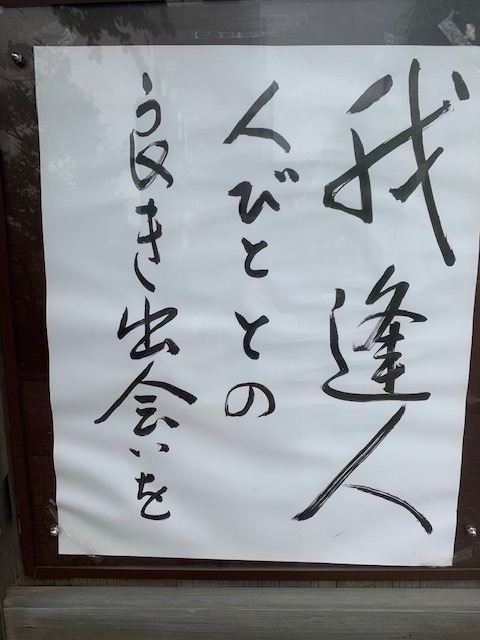 我逢人
人びととの
良き出会いを